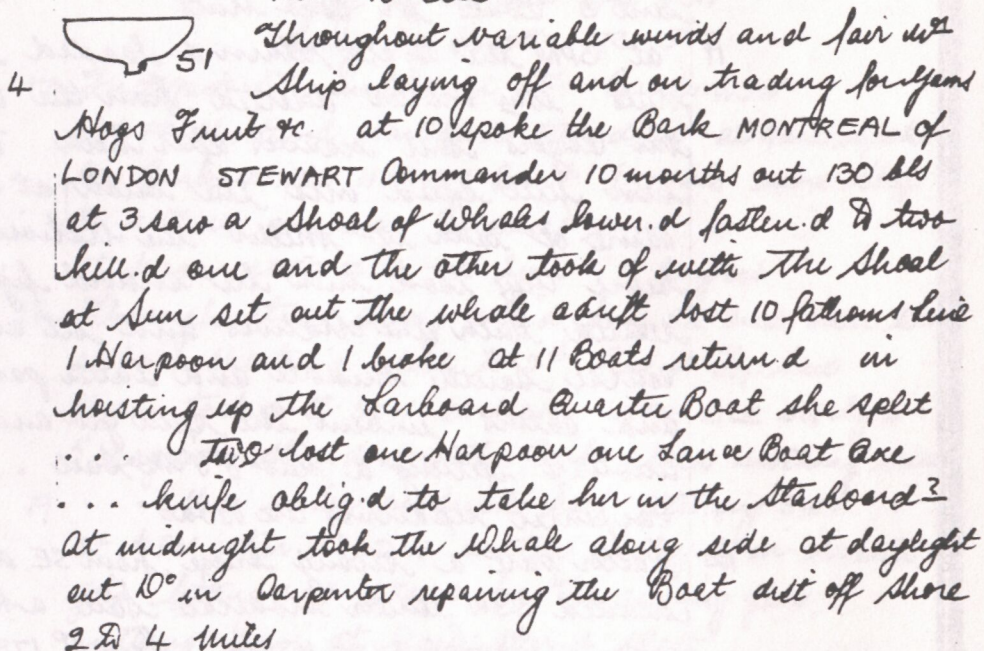 51 Throughout variable winds and fair wr
4 Ship laying off and on trading for Yams
Hogs Fruit &c at 10 spoke the Bark MONTREAL of
LONDON STEWART Commander 10 months out 130 bls
at 3 saw a Shoal of Whales lower.d fasten.d to two
kill.d one and the other took of with the Shoal
at Sun set cut the whale adrift lost 10 fathoms line
1 Harpoon and 1 broke at 11 Boats return.d in
hoisting up the Larboard Quarter Boat she split
... two lost one Harpoon one Lance Boat axe
... knife oblig.d to take her in the Starboard?
at midnight took the Whale along side at daylight
cut Do in Carpenter repairing the Boat dist off Shore
2 to 4 Miles